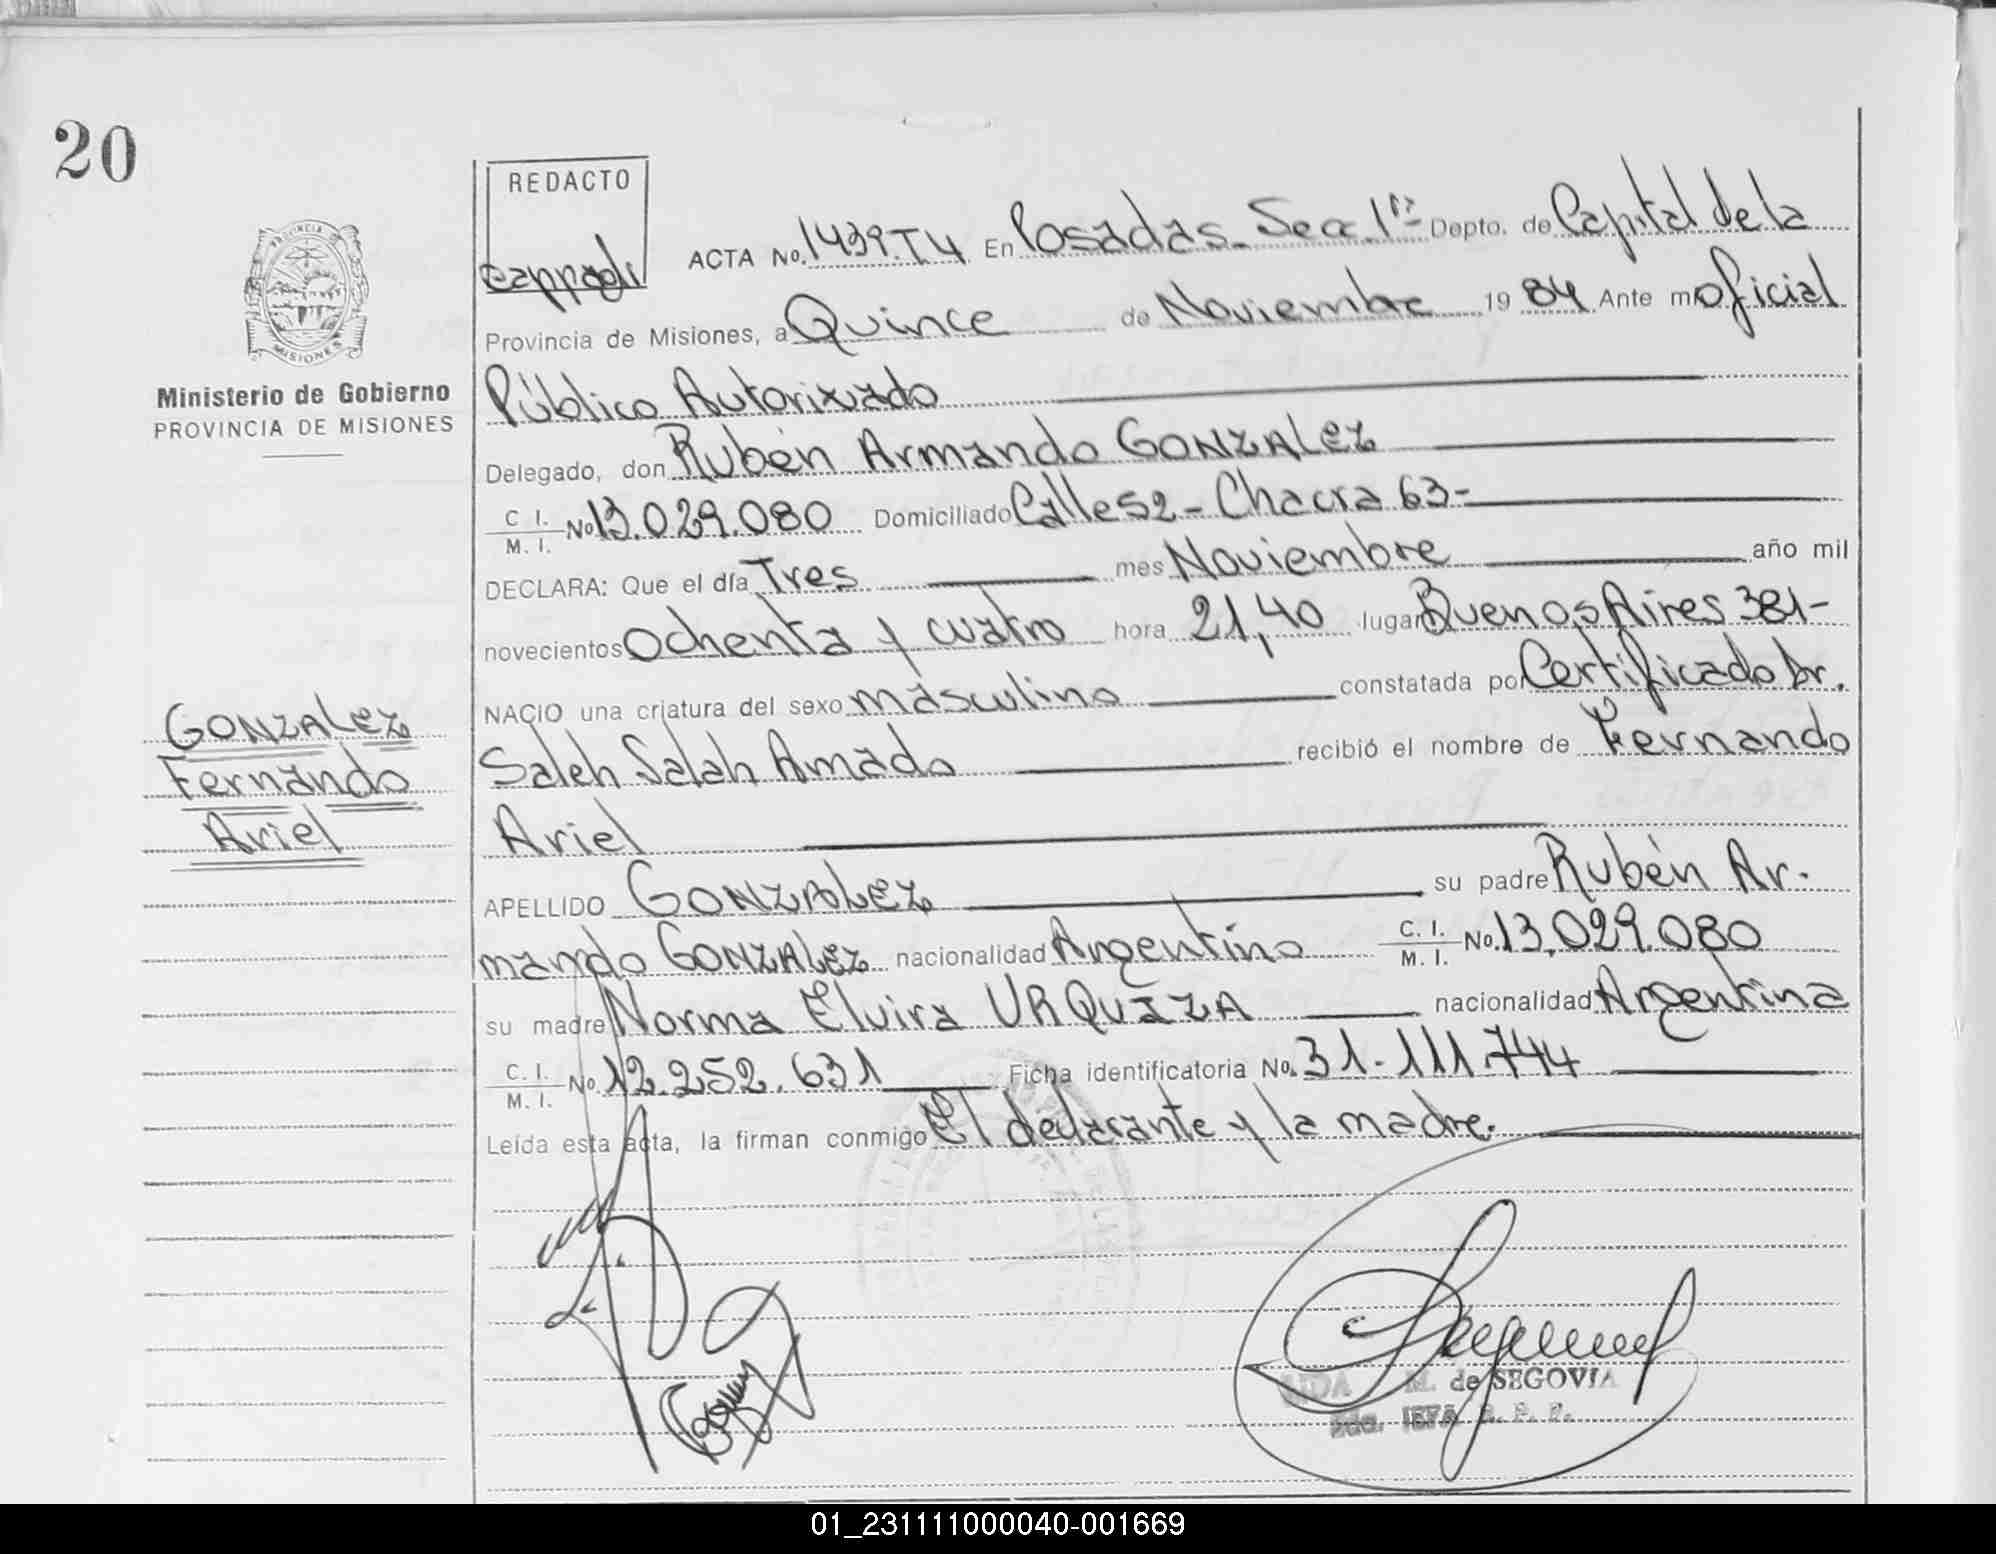 20
REDACTO
ACTA No. 1439.T4 En Posadas - Secc. 1ra Depto. de Capital de la
Provincia de Misiones, a Quince de Noviembre 1984 Ante mi Oficial
Público Autorizado
Delegado, don Rubén Armando GONZALEZ
C. I. M. I. No 13.029.080 Domiciliado Calle 52 - Chacra 63 -
DECLARA: Que el día Tres mes Noviembre año mil
novecientos Ochenta y cuatro hora 21,40 lugar Buenos Aires 381 -
NACIO una criatura del sexo masculino constatada por Certificado Dr.
Saleh Salah Amado recibió el nombre de Fernando
Ariel
APELLIDO GONZALEZ su padre Rubén Ar-
mando GONZALEZ nacionalidad Argentino C. I. M. I. No. 13.029.080
su madre Norma Elvira URQUIZA nacionalidad Argentina
C. I. M. I. No. 12.252.631 Ficha identificatoria No. 31-111.744
Leída esta acta, la firman conmigo El declarante y la madre.
PROVINCIA DE
MISIONES
Ministerio de Gobierno
PROVINCIA DE MISIONES
GONZALEZ
Fernando
Ariel
AIDA M. de SEGOVIA
2da. JEFA R. P. P.
01_231111000040-001669